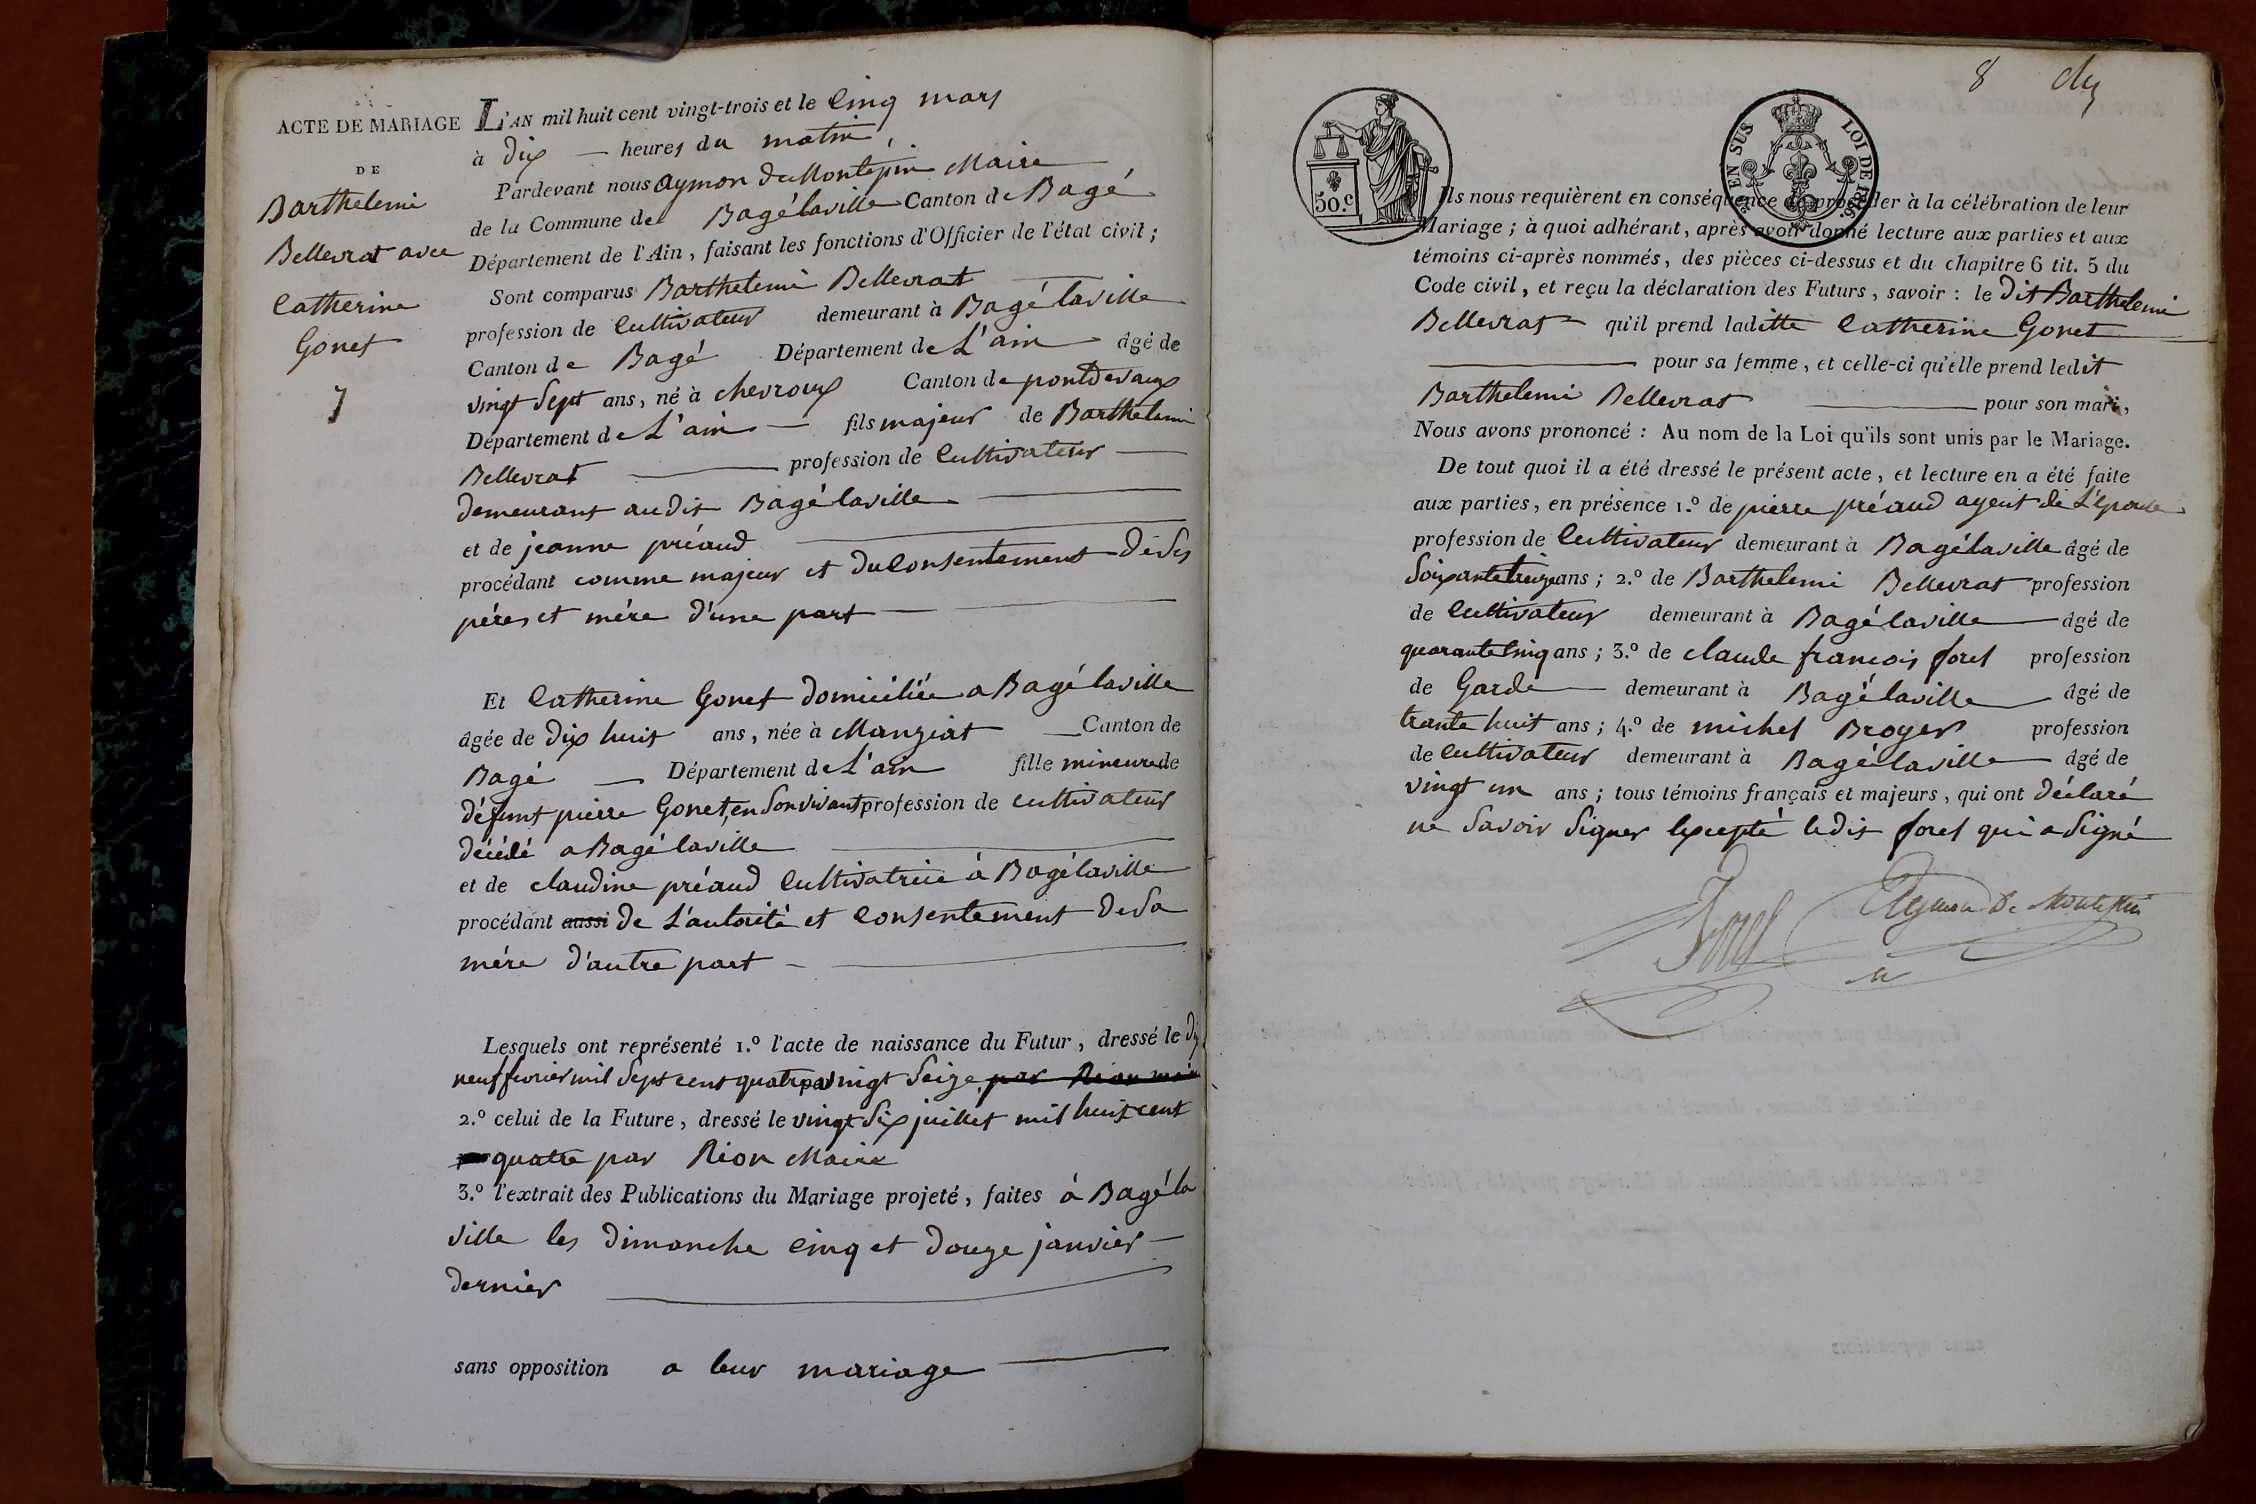 ACTE DE MARIAGE
DE
Barthelemi
Bellevrat avec
Catherine
Gonet
7
L'AN mil huit cent vingt-trois et le cinq mars
à dix heures du matin,
Pardevant nous aymon de Montepin Maire
de la Commune de Bagélaville Canton de Bagé
Département de l'Ain, faisant les fonctions d'Officier de l'état civil;
Sont comparus Barthelemi Bellevrat
profession de Cultivateur demeurant à Bagé laville
Canton de Bagé Département de L'ain âgé de
vingt Sept ans, né à chevroux Canton de pontdevaux
Département de L'ain fils majeur de Barthelemi
Bellevrat profession de Cultivateur
demeurant audit Bagélaville
et de jeanne préaud
procédant comme majeur et du Consentement de Ses
péres et mére d'une part
Et Catherine Gonet domiciliée a Bagé laville
âgée de dix huit ans, née à Manziat Canton de
Bagé Département de L'ain fille mineure de
défunt pierre Gonet, en Son vivant profession de cultivateur
décédé a Bagé laville
et de claudine préaud Cultivatrice à Bagélaville
procédant aussi de L'autorité et Consentement de Sa
mére d'autre part
Lesquels ont représenté 1.º l'acte de naissance du Futur, dressé le dix
neuf fevrier mil Sept cent quatre vingt Seize par Rion mair
2.º celui de la Future, dressé le vingt Six juillet mil huit cent
quatre par Rion Maire
3.º l'extrait des Publications du Mariage projeté, faites à Bagé la
ville les dimanche cinq et douze janvier
dernier
sans opposition a leur mariage
8
50.c
EN SUS LOI DE 1816.
Ils nous requièrent en conséquence de procéder à la célébration de leur
Mariage; à quoi adhérant, après avoir donné lecture aux parties et aux
témoins ci-après nommés, des pièces ci-dessus et du chapitre 6 tit. 5 du
Code civil, et reçu la déclaration des Futurs, savoir: le dit Barthelemi
Bellevrat qu'il prend laditte Catherine Gonet
pour sa femme, et celle-ci qu'elle prend ledit
Barthelemi Bellevrat pour son mari,
Nous avons prononcé: Au nom de la Loi qu'ils sont unis par le Mariage.
De tout quoi il a été dressé le présent acte, et lecture en a été faite
aux parties, en présence 1.º de pierre préaud ayeul de L'épouse
profession de Cultivateur demeurant à Bagélaville âgé de
Soixante treize ans; 2.º de Barthelemi Bellevrat profession
de Cultivateur demeurant à Bagé laville âgé de
quarante Cinq ans; 3.º de claude francois forel profession
de Garde demeurant à Bagé laville âgé de
trante huit ans; 4.º de michel Broyer profession
de Cultivateur demeurant à Bagé laville âgé de
vingt un ans; tous témoins français et majeurs, qui ont déclaré
ne Savoir Signer Excepté ledit forel qui a Signé
Forel Aymon De Montepin